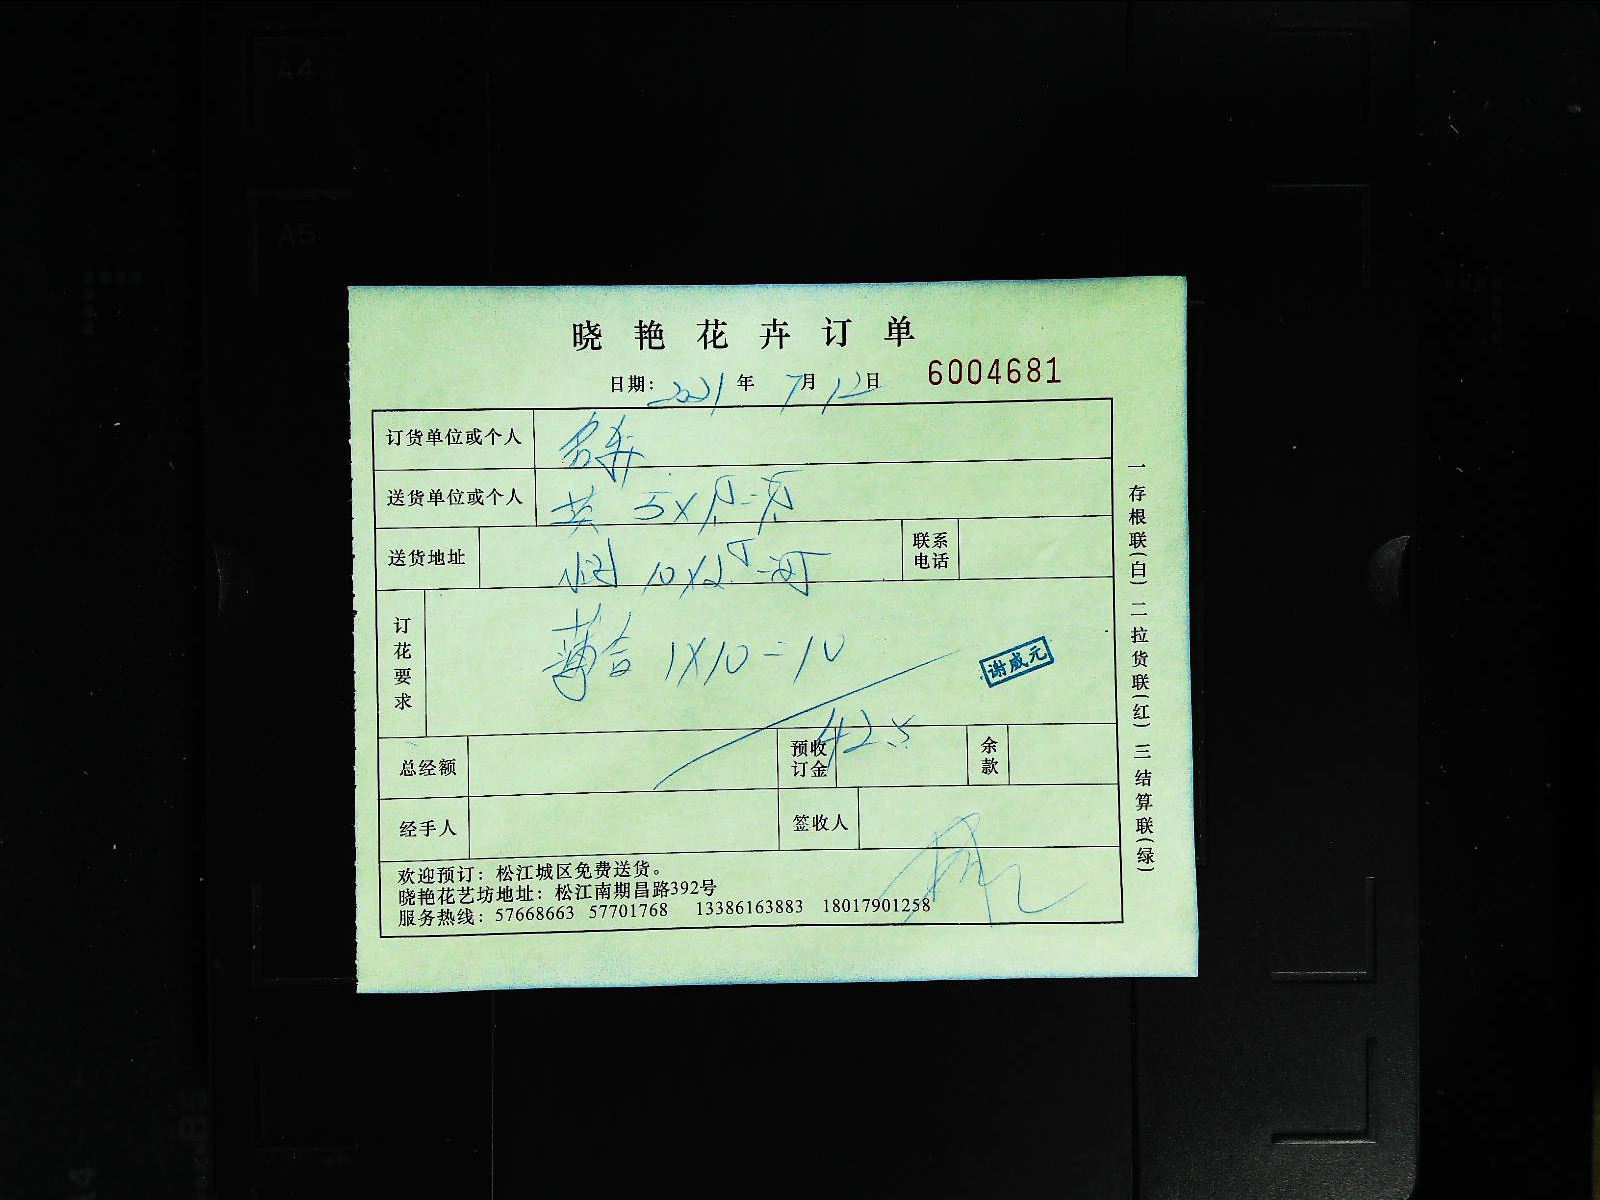 晓艳花卉订单
日期: 2021年 7月12日 6004681
订货单位或个人
送货单位或个人
送货地址
联系电话
订花要求
1X10=10
谢威元
总经额
预收订金 425
余款
经手人
签收人
欢迎预订: 松江城区免费送货。
晓艳花艺坊地址: 松江南期昌路392号
服务热线: 57668663 57701768 13386163883 18017901258
一存根联(白) 二拉货联(红) 三结算联(绿)
A4
A5